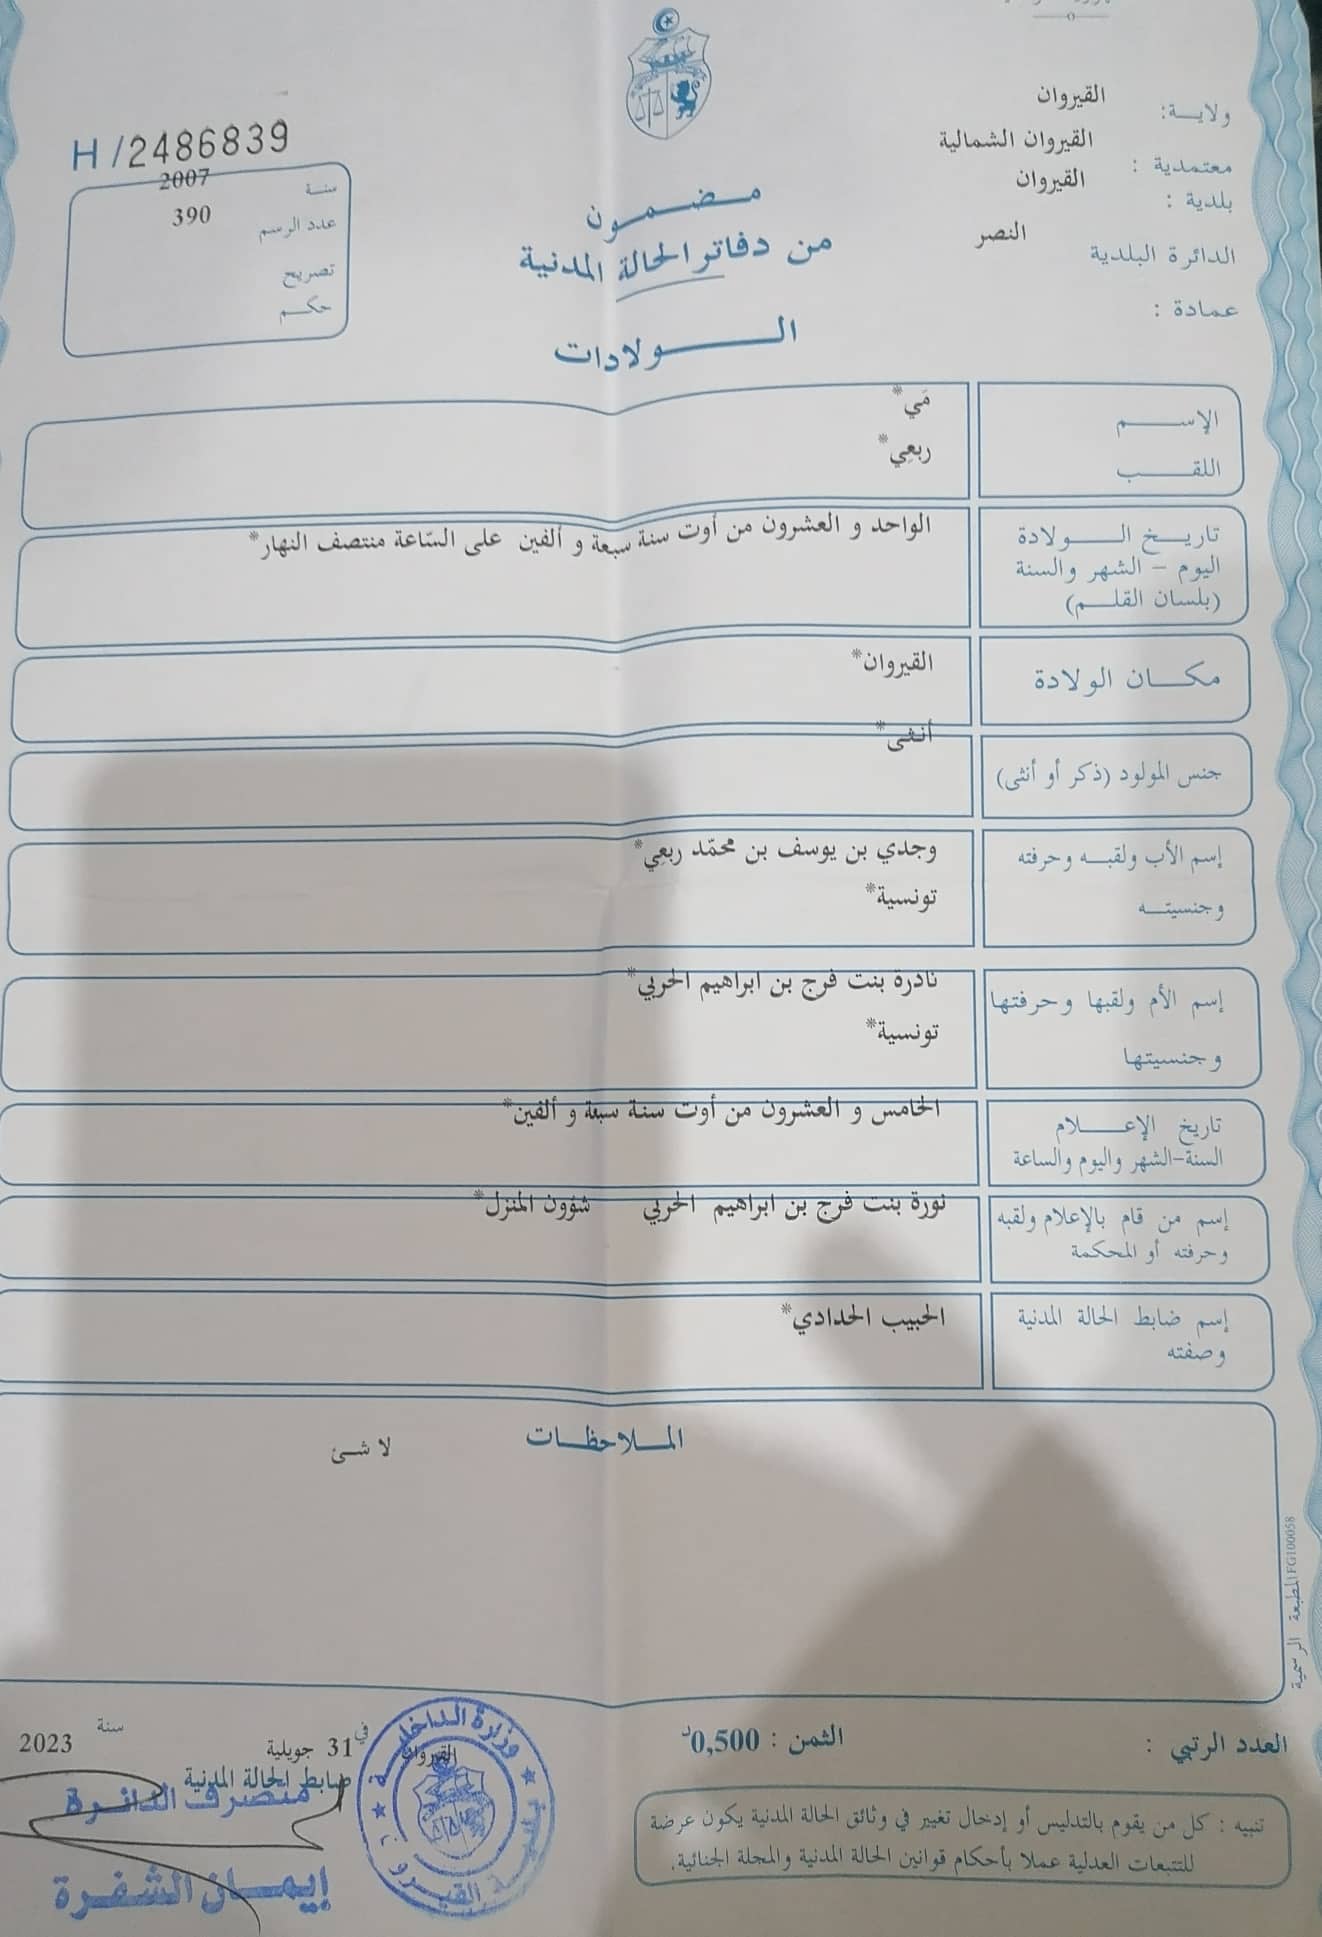 H/2486839
سنة 2007
عدد الرسم 390
تصريح
حكم
ولاية: القيروان
معتمدية : القيروان الشمالية
بلدية : القيروان
الدائرة البلدية النصر
عمادة :
مضمون
من دفاتر الحالة المدنية
الولادات
الإسم مَي*
اللقب ربعِي*
تاريخ الولادة
اليوم - الشهر والسنة
(بلسان القلم)
الواحد و العشرون من أوت سنة سبعة و ألفين على السّاعة منتصف النهار*
مكان الولادة القيروان*
جنس المولود (ذكر أو أنثى) أنثى*
إسم الأب ولقبه وحرفته وجدي بن يوسف بن محمّد ربعِي*
وجنسيته تونسية*
إسم الأم ولقبها وحرفتها نادرة بنت فرج بن ابراهيم الحربي*
وجنسيتها تونسية*
تاريخ الإعلام
السنة-الشهر واليوم والساعة
الخامس و العشرون من أوت سنة سبعة و ألفين*
إسم من قام بالإعلام ولقبه
وحرفته أو المحكمة
نورة بنت فرج بن ابراهيم الحربي شؤون المنزل*
إسم ضابط الحالة المدنية
وصفته
الحبيب الحدادي*
الملاحظات
لا شئ
المطبعة الرسمية FG100058
العدد الرتبي :
الثمن : 0,500د
القيروان في 31 جويلية سنة 2023
ضابط الحالة المدنية
متصرف الدائرة
إيمان الشفرة
وزارة الداخلية
القيروان
تنبيه : كل من يقوم بالتدليس أو إدخال تغيير في وثائق الحالة المدنية يكون عرضة
للتتبعات العدلية عملا بأحكام قوانين الحالة المدنية والمجلة الجنائية.